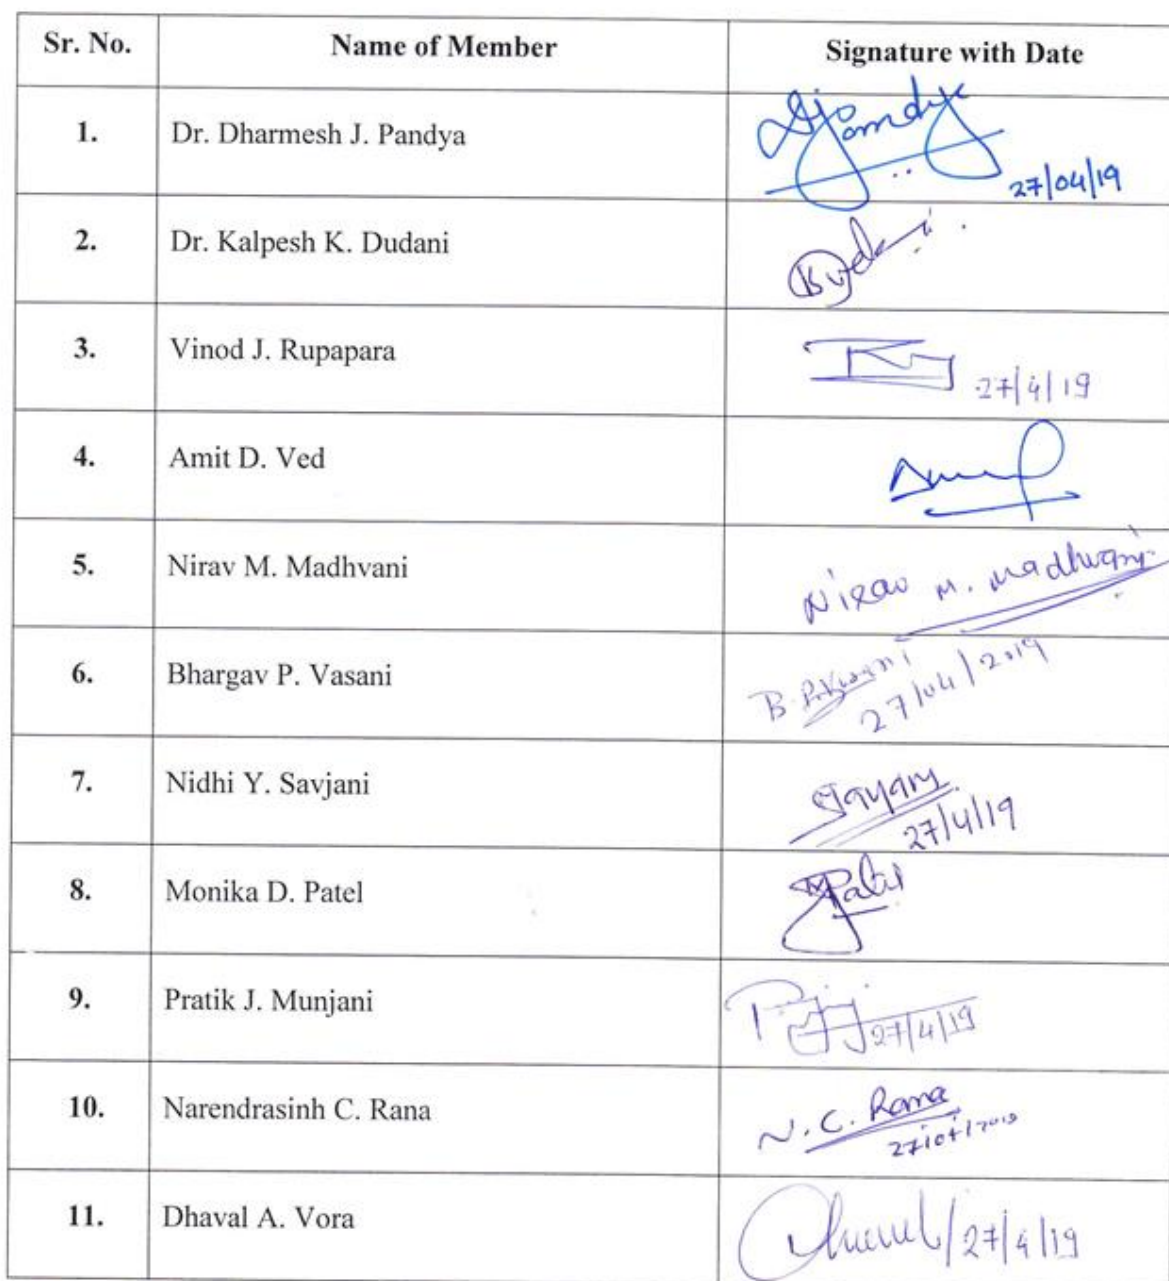 Sr. No. Name of Member Signature with Date
1. Dr. Dharmesh J. Pandya
27/04/19
2. Dr. Kalpesh K. Dudani
3. Vinod J. Rupapara 27/4/19
4. Amit D. Ved
5. Nirav M. Madhvani Nirav M. Madhvani
6. Bhargav P. Vasani
27/04/2019
7. Nidhi Y. Savjani
27/4/19
8. Monika D. Patel
9. Pratik J. Munjani 27/4/19
10. Narendrasinh C. Rana N. C. Rana
27/04/2019
11. Dhaval A. Vora 27/4/19